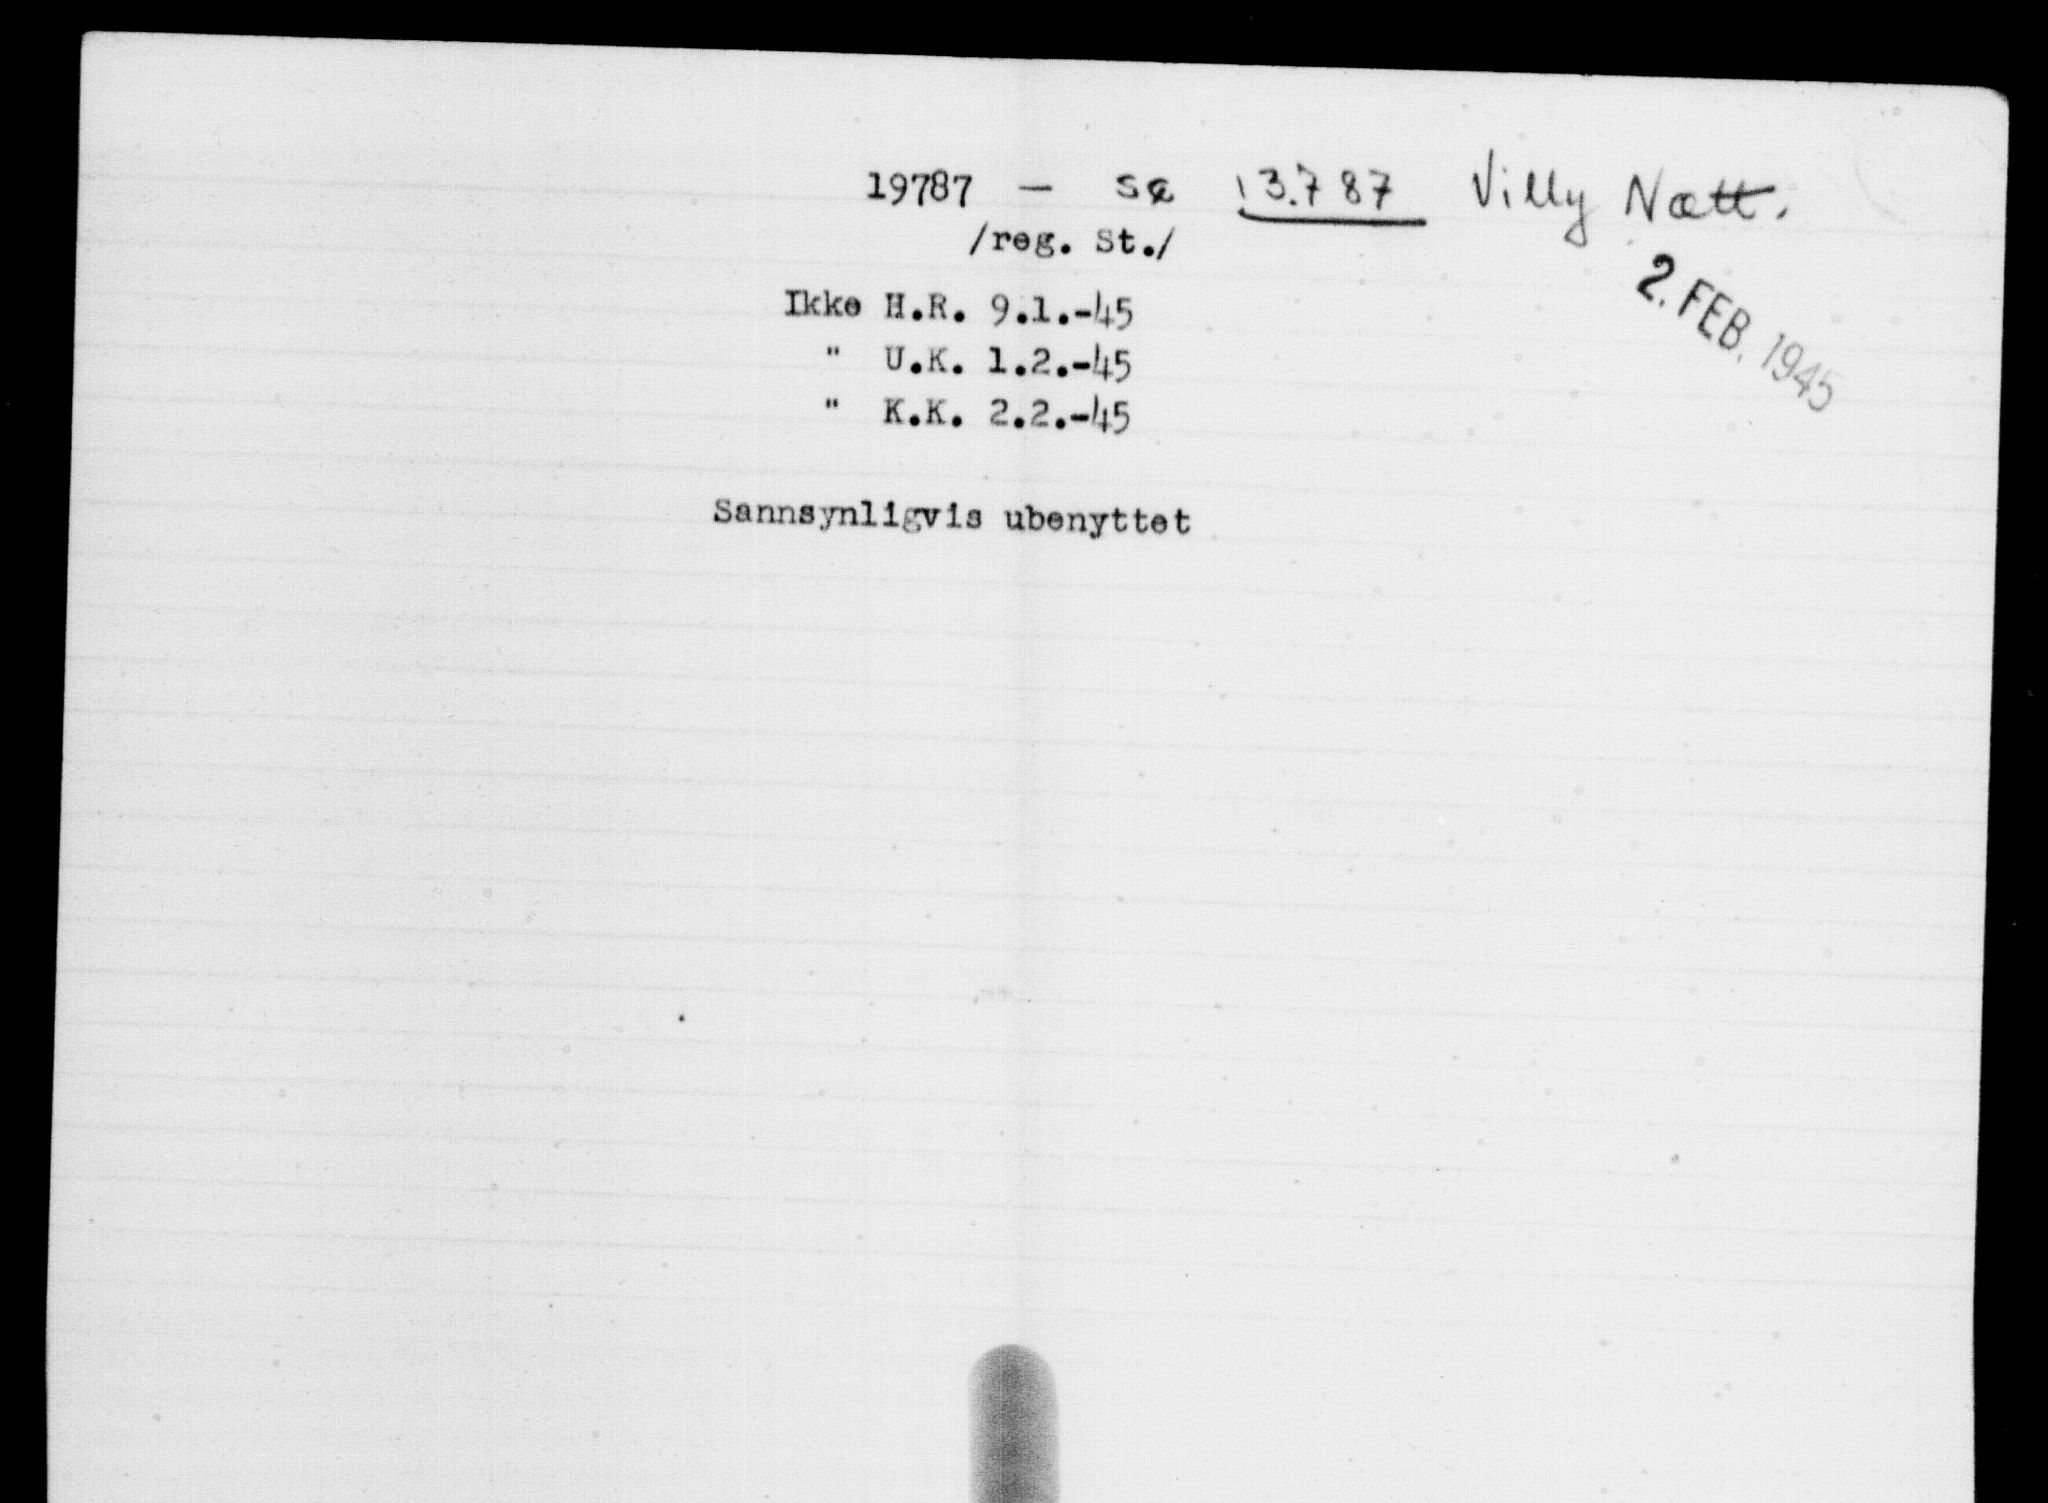 19787 — se 13.787 Villy Nætt.
/reg. St./
2. FEB. 1945
Ikke H.R. 9.1.-45
" U.K. 1.2.-45
" K.K. 2.2.-45
Sannsynligvis ubenyttet